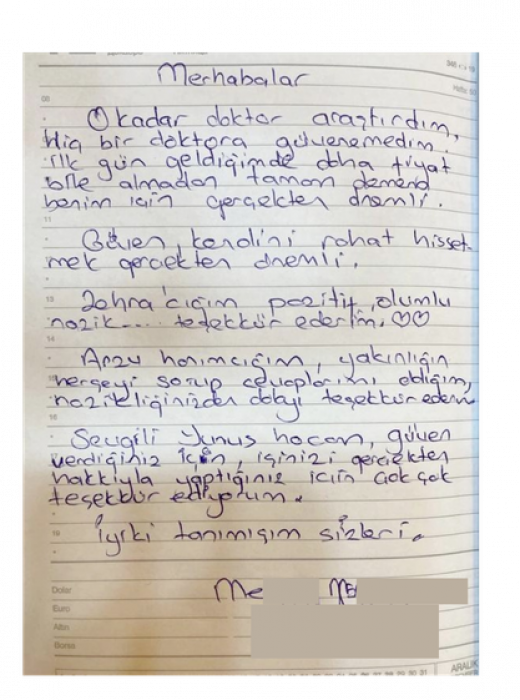 Merhabalar
O kadar doktor araştırdım,
Hiç bir doktora güvenemedim.
ilk gün geldiğimde daha fiyat
bile almadan tamam demem
benim için gerçekten önemli.
11
Güven, kendini rahat hisset-
mek gerçekten önemli.
13
Zehra'cığım pozitif, olumlu
nazik.... teşekkür ederim. ♡♡
14
Arzu hanımcığım, yakınlığın
herşeyi sorup cevaplarımı aldığım,
nazikliğinizden dolayı teşekkür ederim
16
Sevgili Yunus hocam, güven
verdiğiniz için, işinizi gerçekten
hakkıyla yaptığınız için çok çok
teşekkür ediyorum.
İyiki tanımışım sizleri.
Me
Dolar
Euro
Altın
Borsa
ARALIK